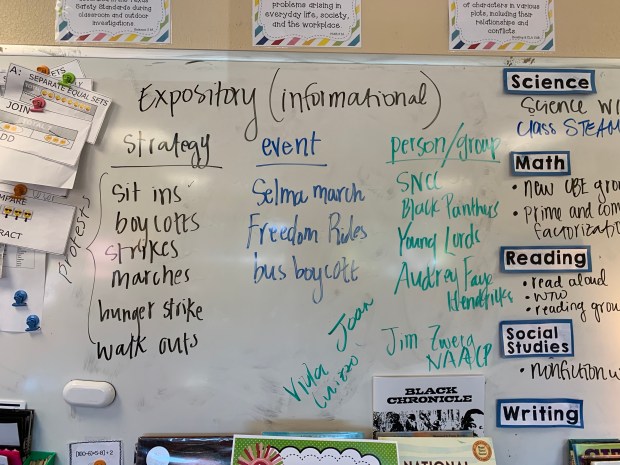 Safety Standards during
classroom and outdoor
investigations.
problems arising in
everyday life, society,
and the workplace.
of characters in various
plots, including their
relationships and
conflicts
A:
SEPARATE EQUAL SETS
JOIN
Expository (informational)
strategy
event
person/group
protests
sit ins
boycotts
strikes
marches
hunger strike
walk outs
Selma march
Freedom Rides
bus boycott
SNCC
Black Panthers
Young Lords
Audrey Faye
Hendricks
Jim Zwerg
NAACP
Joan
Viola
Liuzzo
Science
Class STEAM
Math
• new
• prime and
Reading
• read aloud
• WTW
• reading
Social
Studies
Writing
BLACK
CHRONICLE
NATIONAL